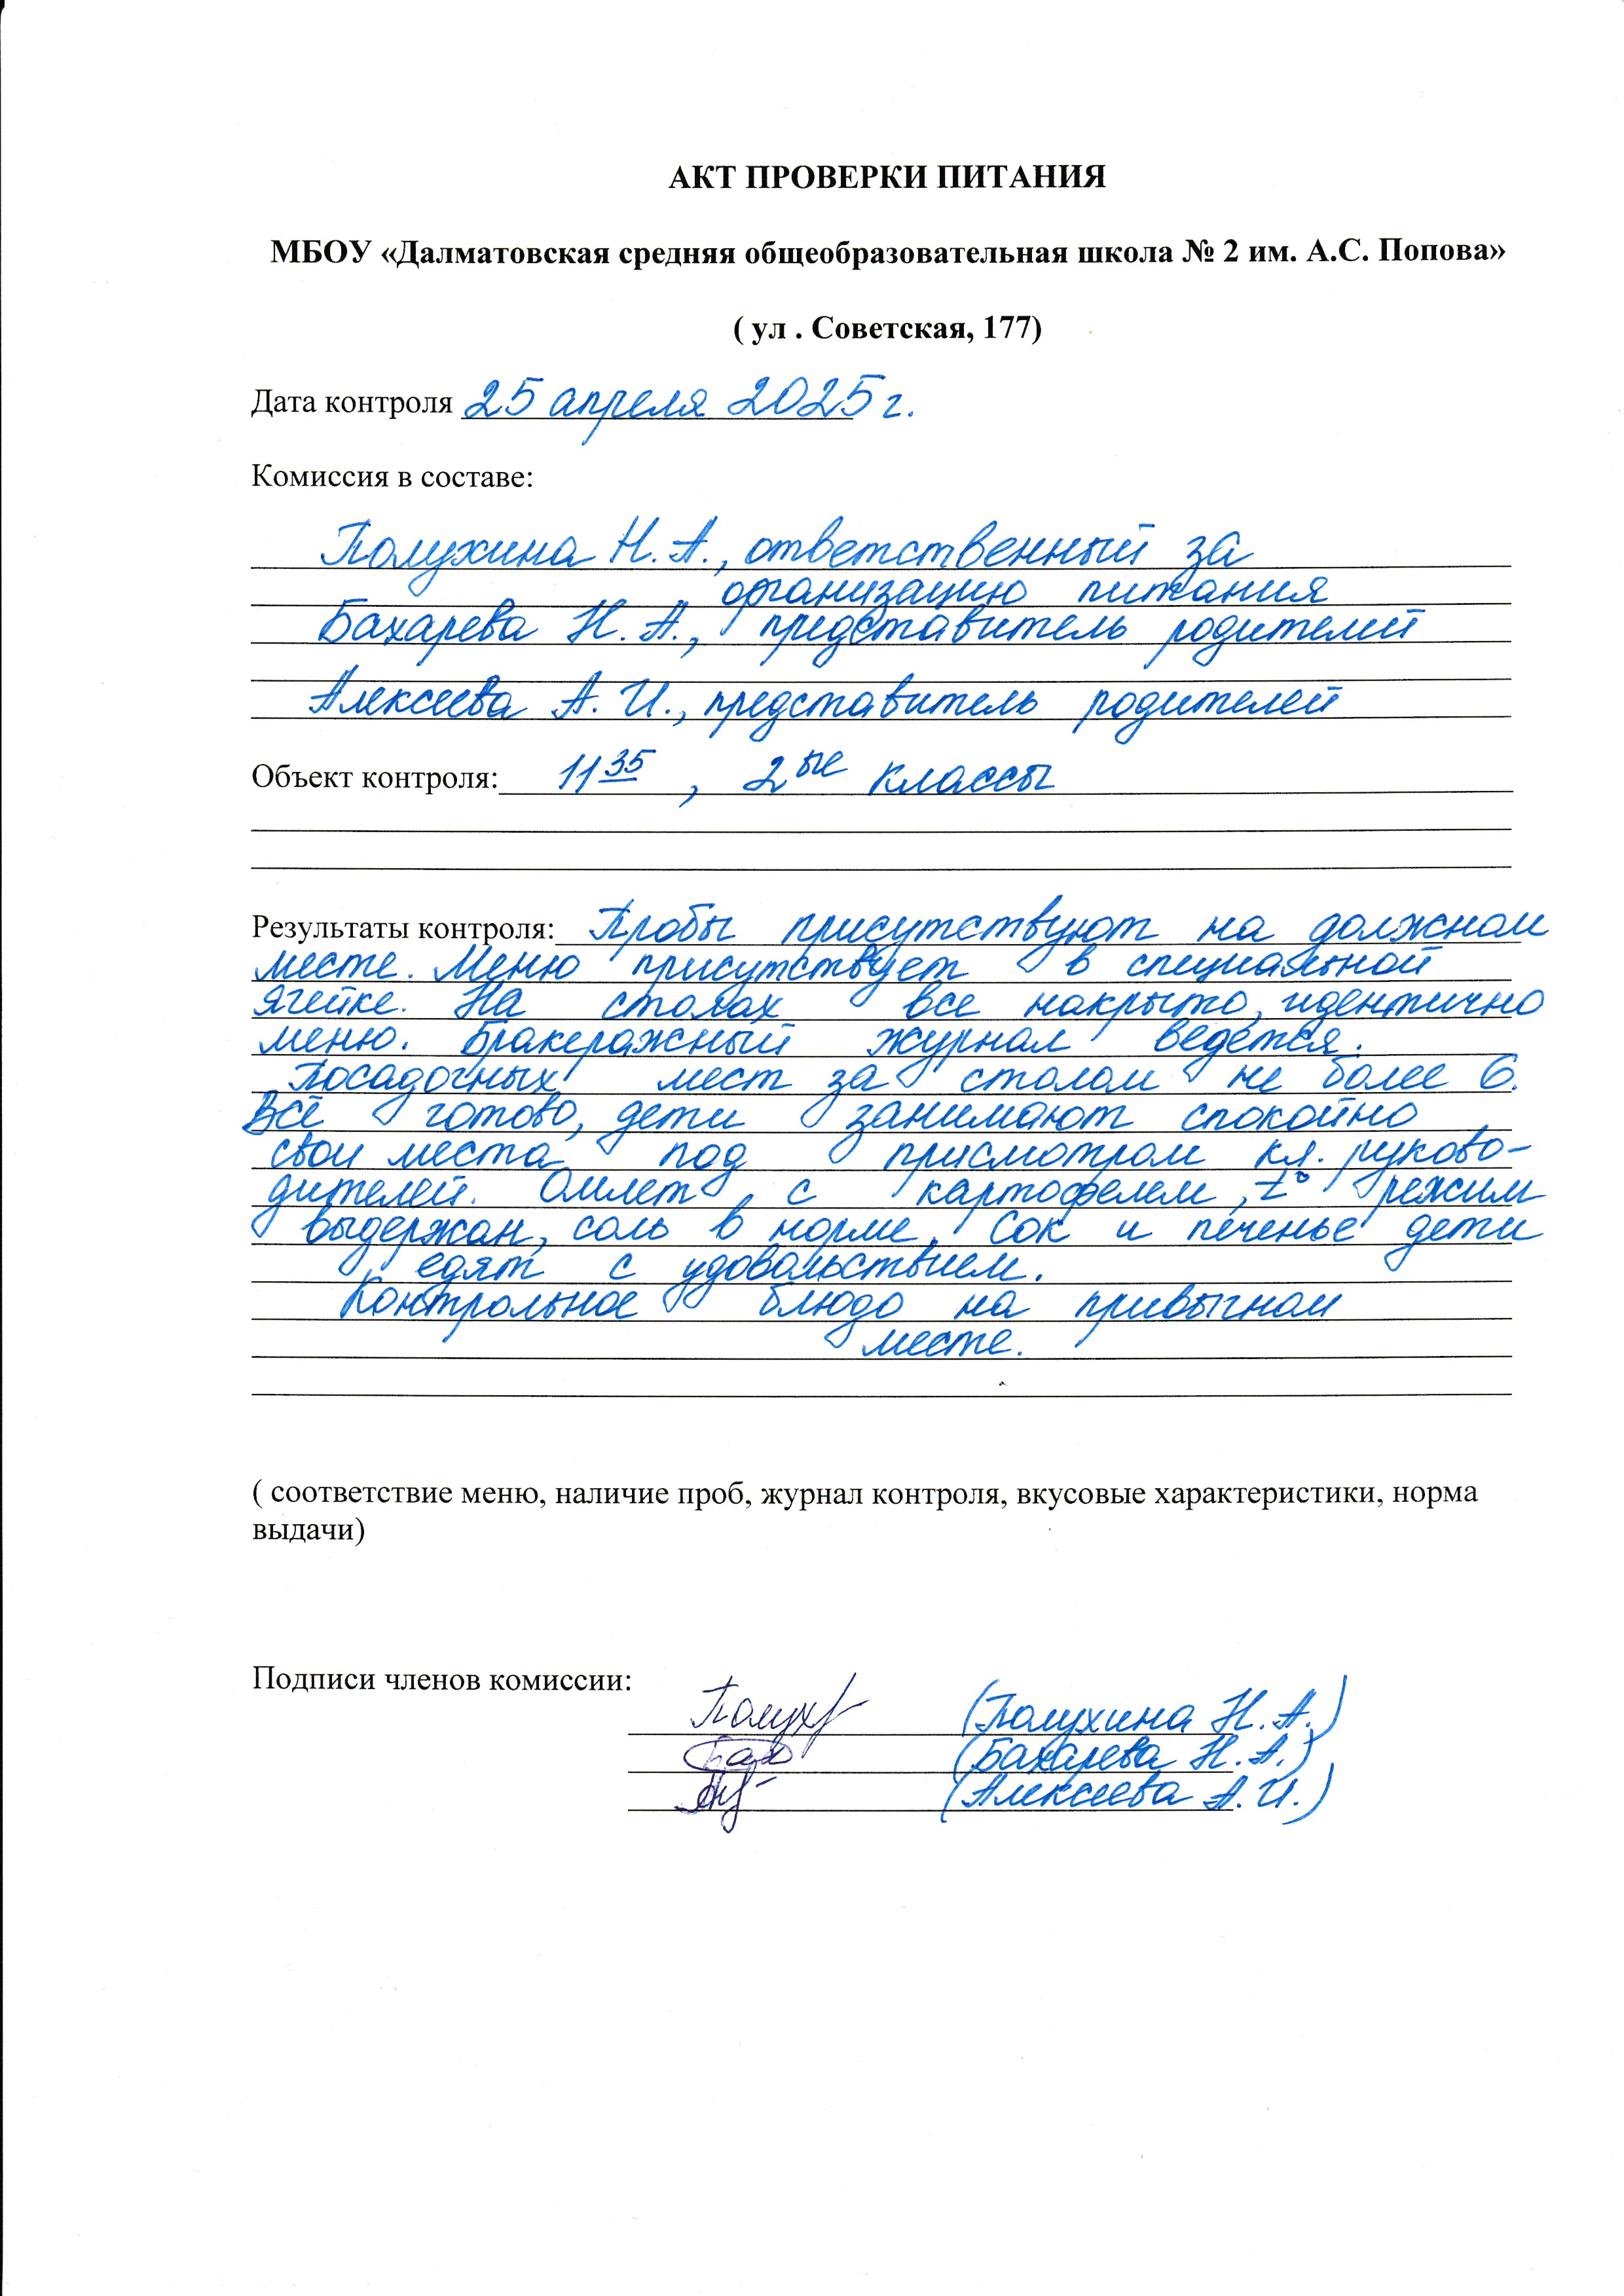 АКТ ПРОВЕРКИ ПИТАНИЯ
МБОУ «Далматовская средняя общеобразовательная школа № 2 им. А.С. Попова»
( ул . Советская, 177)
Дата контроля 25 апреля 2025 г.
Комиссия в составе:
Полухина Н. А., ответственный за
организацию питания
Бахарева Н. А., представитель родителей
Алексеева А. И., представитель родителей
Объект контроля: 11 35 , 2ые классы
Результаты контроля: Пробы присутствуют на должном
месте. Меню присутствует в специальной
ячейке. На столах все накрыто, идентично
меню. Бракеражный журнал ведется.
Посадочных мест за столом не более 6.
Всё готово, дети занимают спокойно
свои места под присмотром кл. руково-
дителей. Омлет с картофелем, t° режим
выдержан, соль в норме. Сок и печенье дети
едят с удовольствием.
Контрольное блюдо на привычном
месте.
( соответствие меню, наличие проб, журнал контроля, вкусовые характеристики, норма
выдачи)
Подписи членов комиссии:
Полух (Полухина Н. А.)
Бах (Бахарева Н. А.)
(Алексеева А. И.)